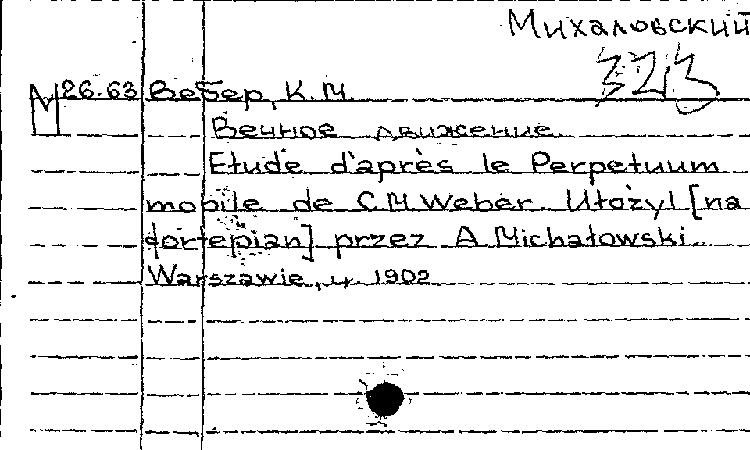 Михаловский
323
М 26.63 Вебер, К.М.
Вечное движение
Etude d'après le Perpetuum
mobile de C.M.Weber. Ułożył [na
fortepian] przez A.Michałowski.
Warszawie, 1902